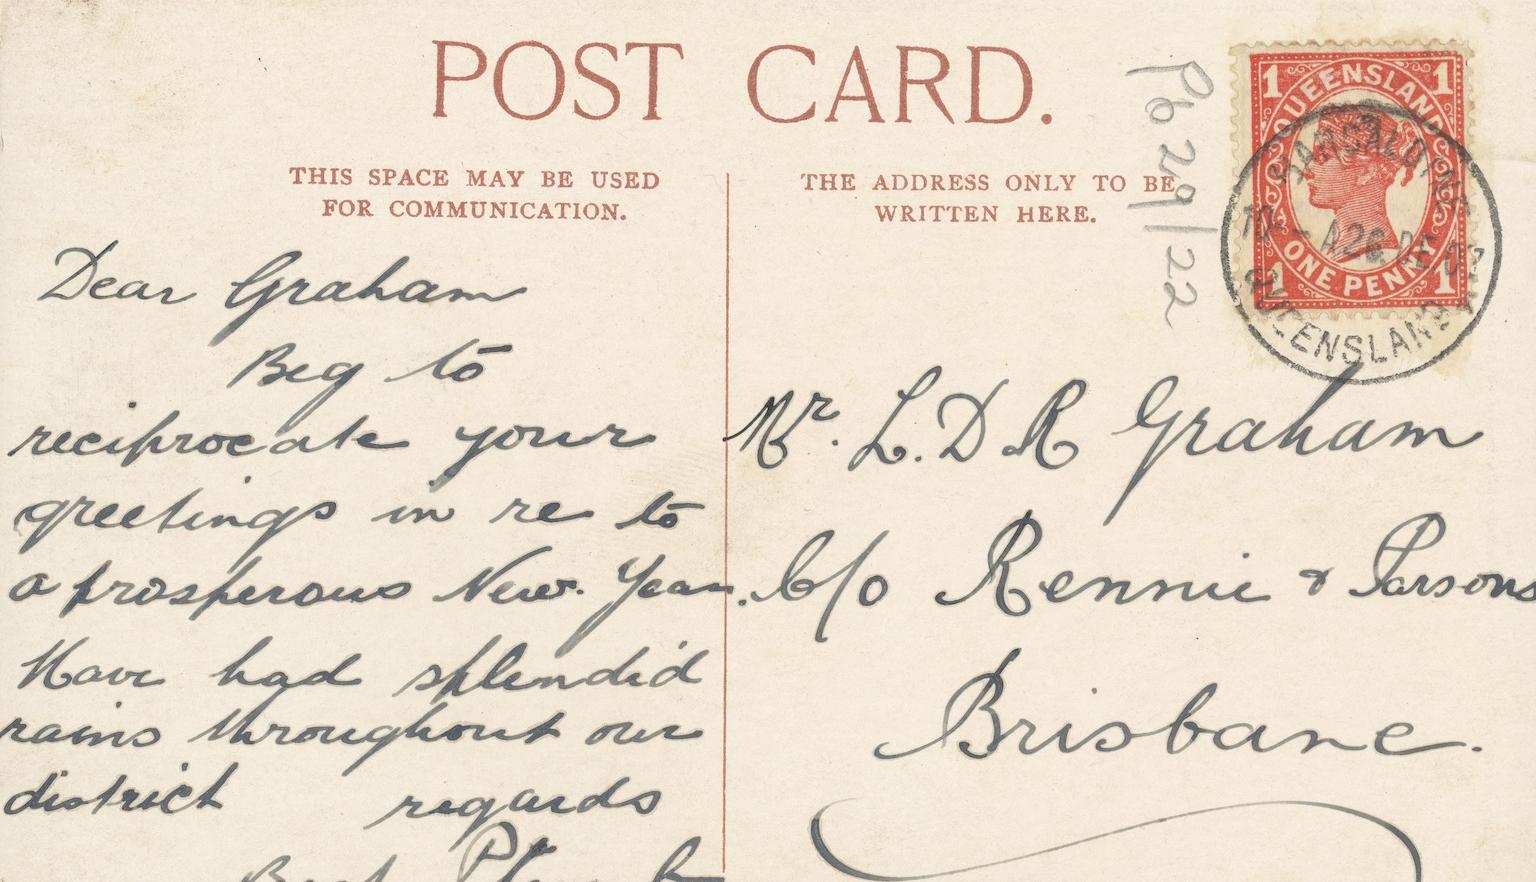 POST CARD.
THIS SPACE MAY BE USED
FOR COMMUNICATION.
THE ADDRESS ONLY TO BE
WRITTEN HERE.
Dear Graham
Beg to
reciprocate your
greetings in re to
a prosperous New Year.
Have had splendid
rains throughout our
district regards
Mr. L. D R Graham
C/o Rennie & Parsons
Brisbane.
P6 29/22
1 QUEENSLAND 1
1 ONE PENNY 1
BARCALDINE
QUEENSLAND